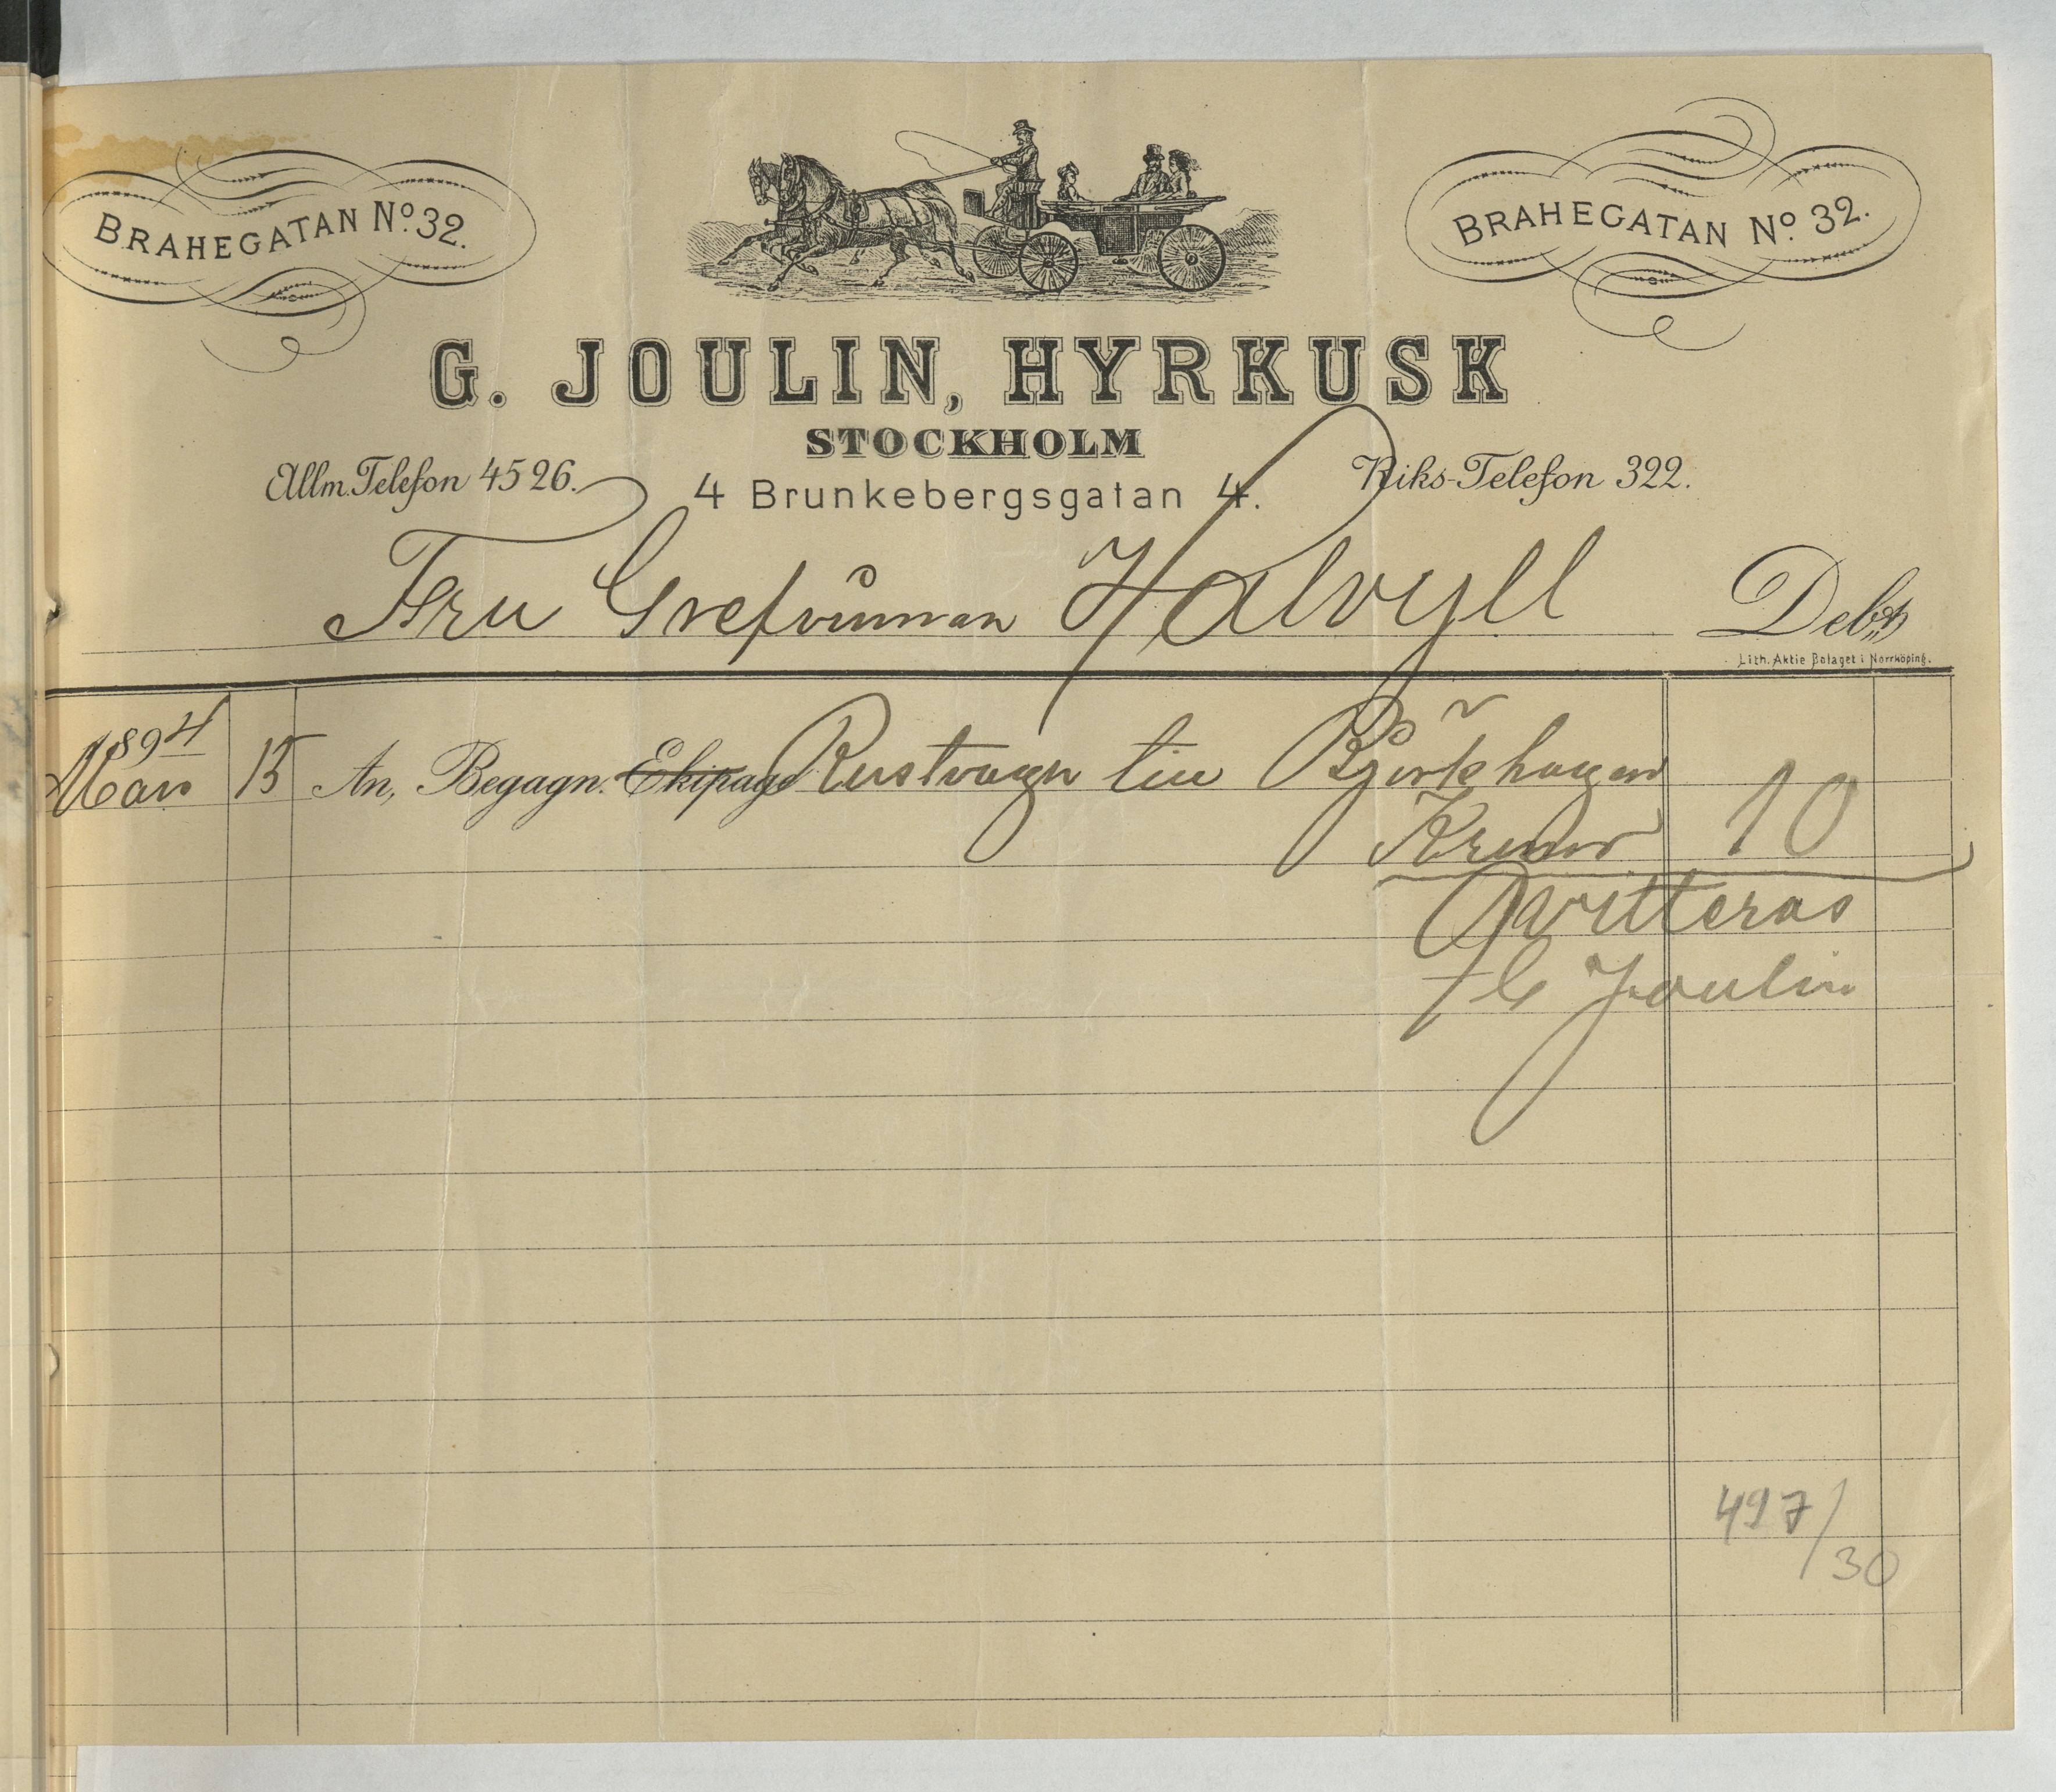 BRAHEGATAN No. 32.
BRAHEGATAN No. 32.
G. JOULIN, HYRKUSK
STOCKHOLM
Allm. Telefon 4526.
4 Brunkebergsgatan 4.
Riks-Telefon 322.
Fru Grefvinnan Halvyll Debet
Lith. Aktie Bolaget i Norrköping.
1894
Mars 15 An, Begagn. Ekipage Rustvagn till Björkhagen
Kronor 10
Qvitteras
G Joulin
497/30